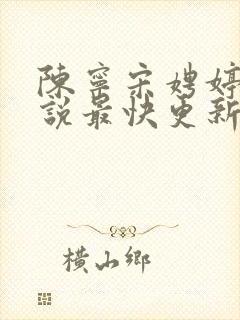 陳寧宋娉婷
說最快更新
橫山鄉